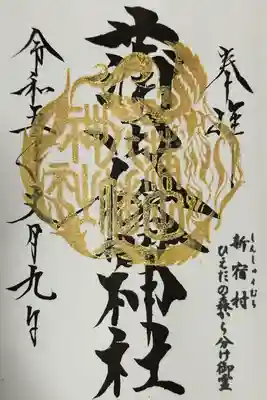 奉拝
しんしゅくむら
新宿村
ひえだの森から分け御霊
蒲田八幡神社
令和五年 月九日